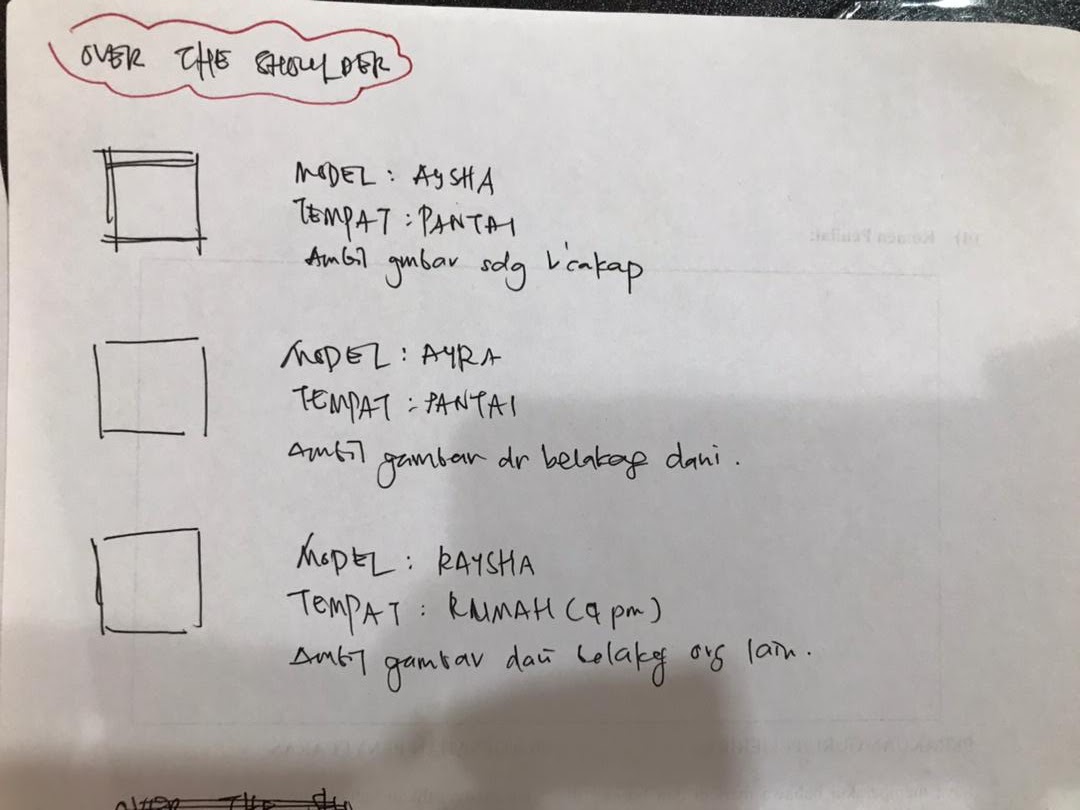 OVER THE SHOULDER
MODEL : AYSHA
TEMPAT : PANTAI
Ambil gmbar sdg b'cakap
MODEL : AYRA
TEMPAT : PANTAI
Ambil gambar dr belakag dani.
MODEL : RAYSHA
TEMPAT : RUMAH (9 pm)
Ambil gambar dari belakg org lain.
OVER THE